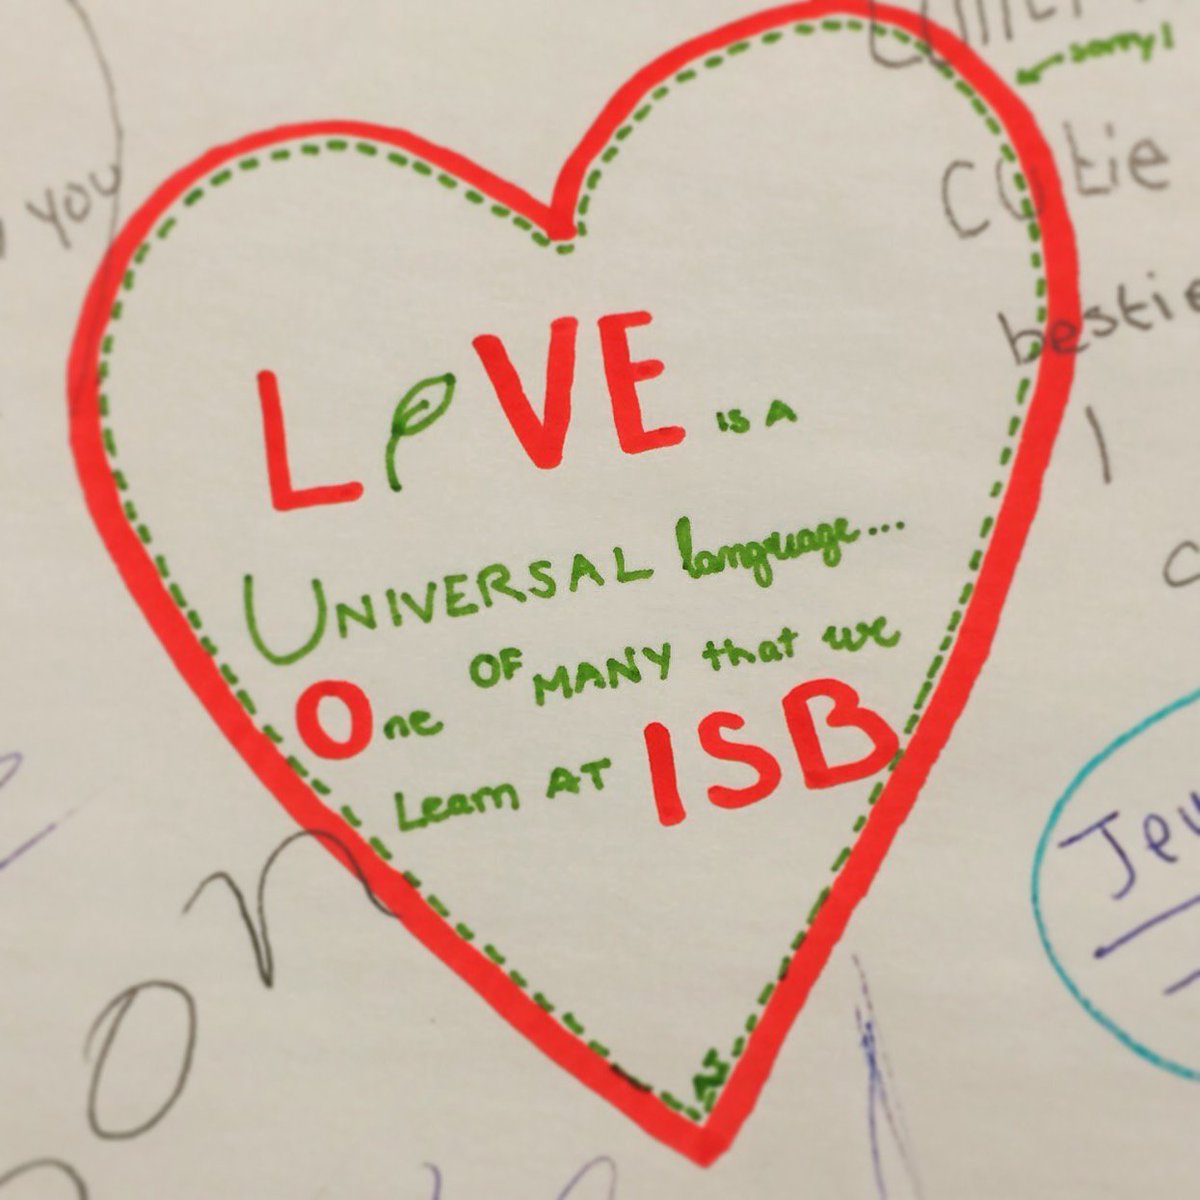 sorry!
YOU
cutie
bestie
LOVE IS A
UNIVERSAL language...
One OF MANY that we
Learn AT ISB
or